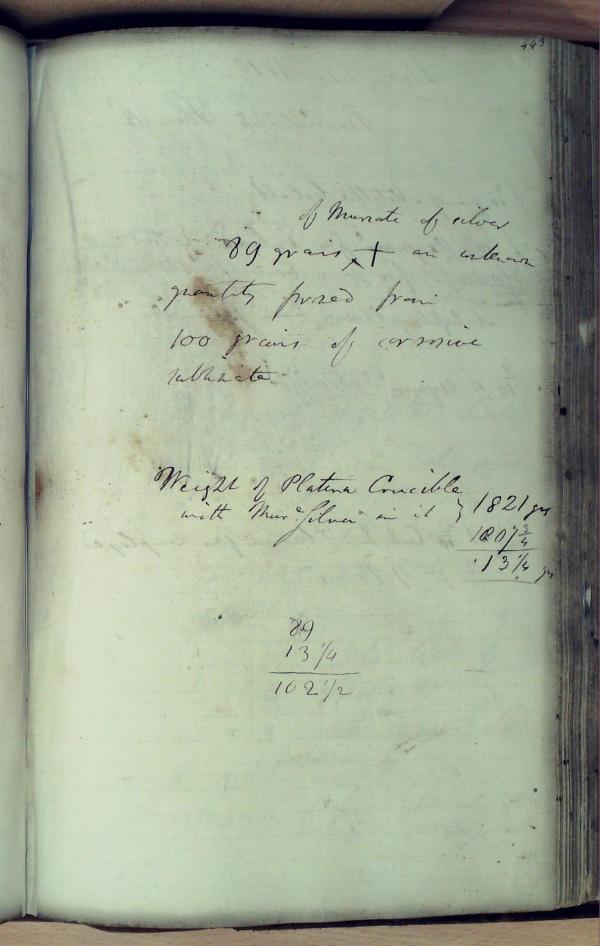 443
of Muriate of silver
89 grains + an unknown
quantity fused from
100 grains of corrosive
sublimate
Weight of Platina Crucible
with Mur.e Silver in it } 1821 grs
1807 3/4
13 1/4 grs
89
13 1/4
102 1/2